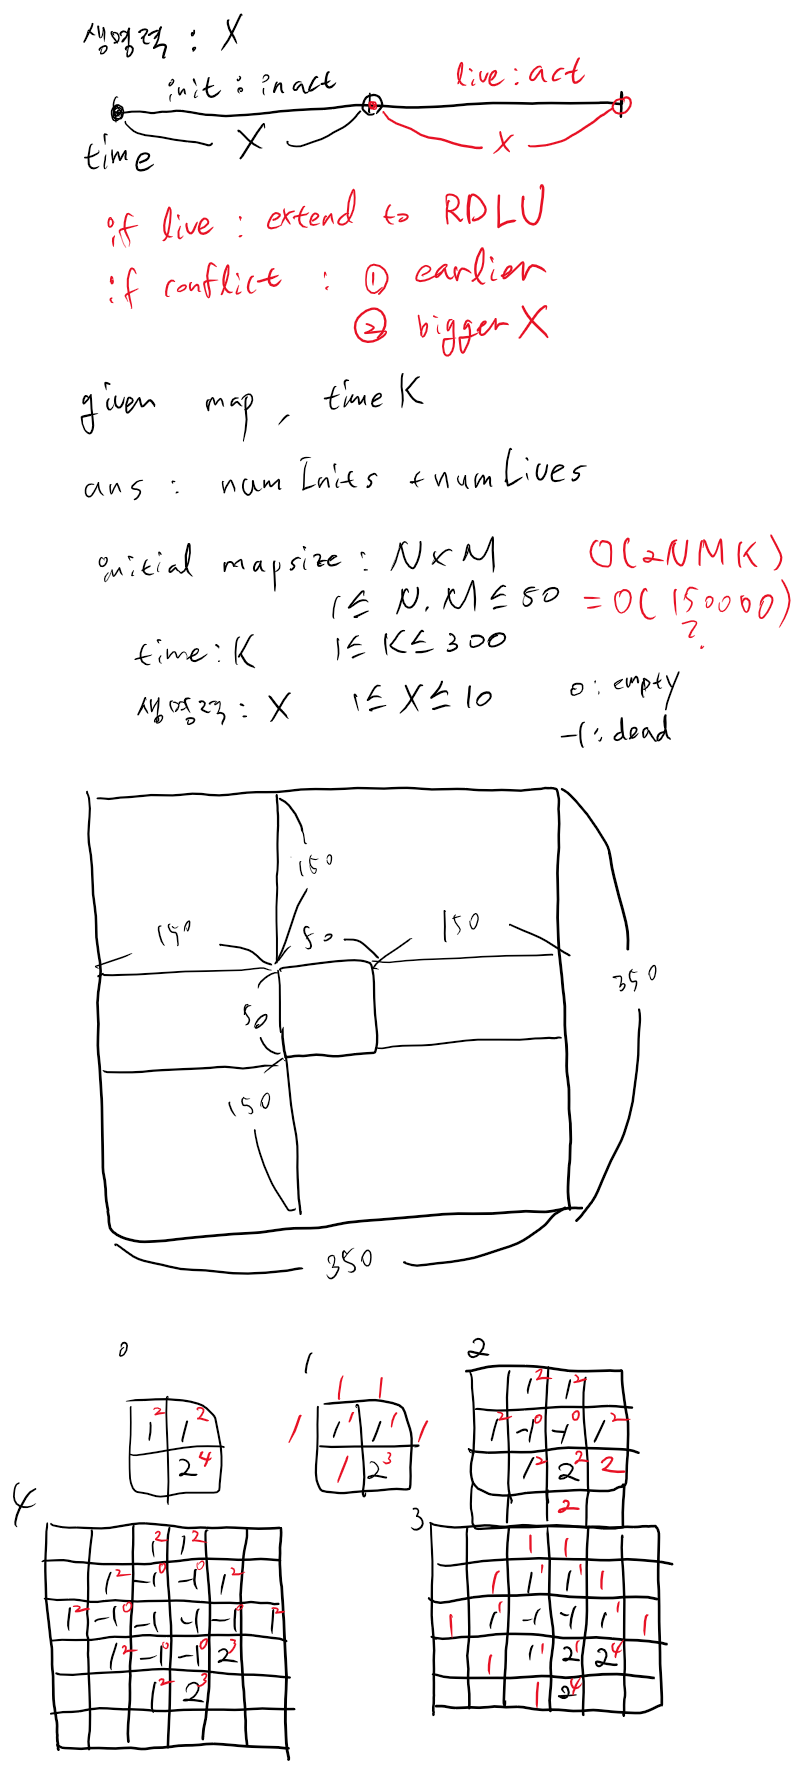 생명력 : X
init : inact live : act
X X
time
if live : extend to RDLU
if conflict : ① earlier
② bigger X
given map, time K
ans : numInits + numLives
initial mapsize : N x M O(2NMK)
1 ≤ N, M ≤ 50 = O(150000)
?
time : K 1 ≤ K ≤ 300
생명력 : X 1 ≤ X ≤ 10 0 : empty
-1 : dead
150
150 50 150
350
50
150
350
0 1 2
1² 1²
2⁴
1 1
1 1¹ 1¹ 1
1 2³
1² 1²
1² -1⁰ -1⁰ 1²
1² 2² 2
2
4
1² 1²
1² -1⁰ -1⁰ 1²
1² -1⁰ -1 -1 -1⁰ 1²
1² -1⁰ -1⁰ 2³
1² 2³
3
1 1
1 1¹ 1¹ 1
1 1¹ -1 -1 1¹ 1
1 1¹ 2¹ 2⁴
1 2⁴